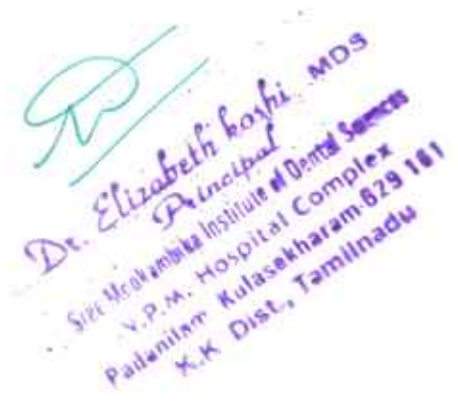 Dr. Elizabeth koshi, MDS
Principal
Sree Mookambika Institute of Dental Sciences
V.P.M. Hospital Complex
Padanilam Kulasekharam-629 161
K.K Dist., Tamilnadu